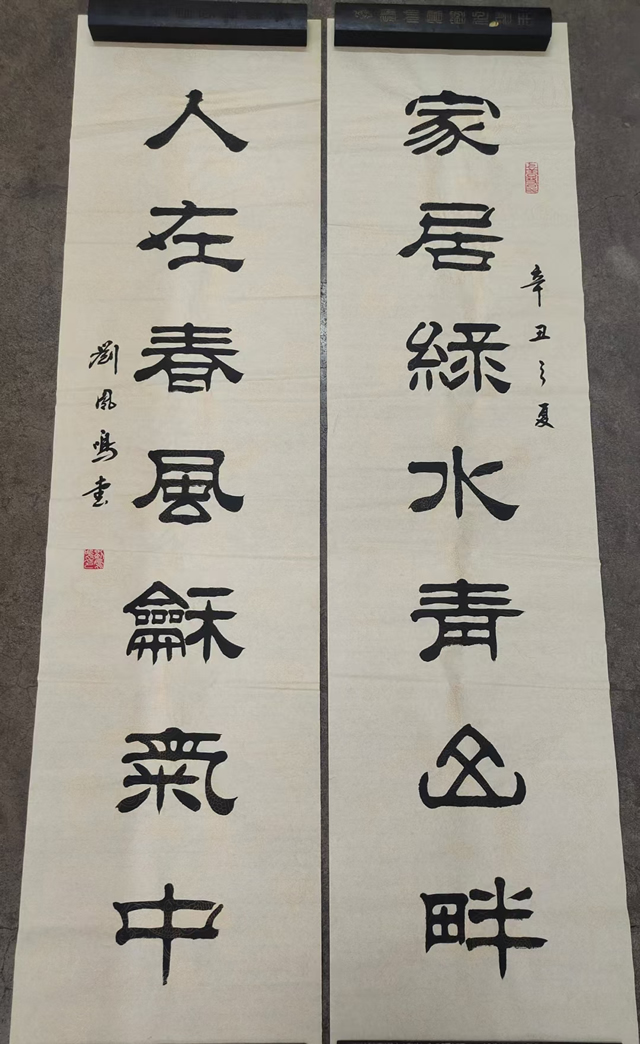 家居綠水青山畔
辛丑之夏
人在春風龢氣中
劉鳳鳴書